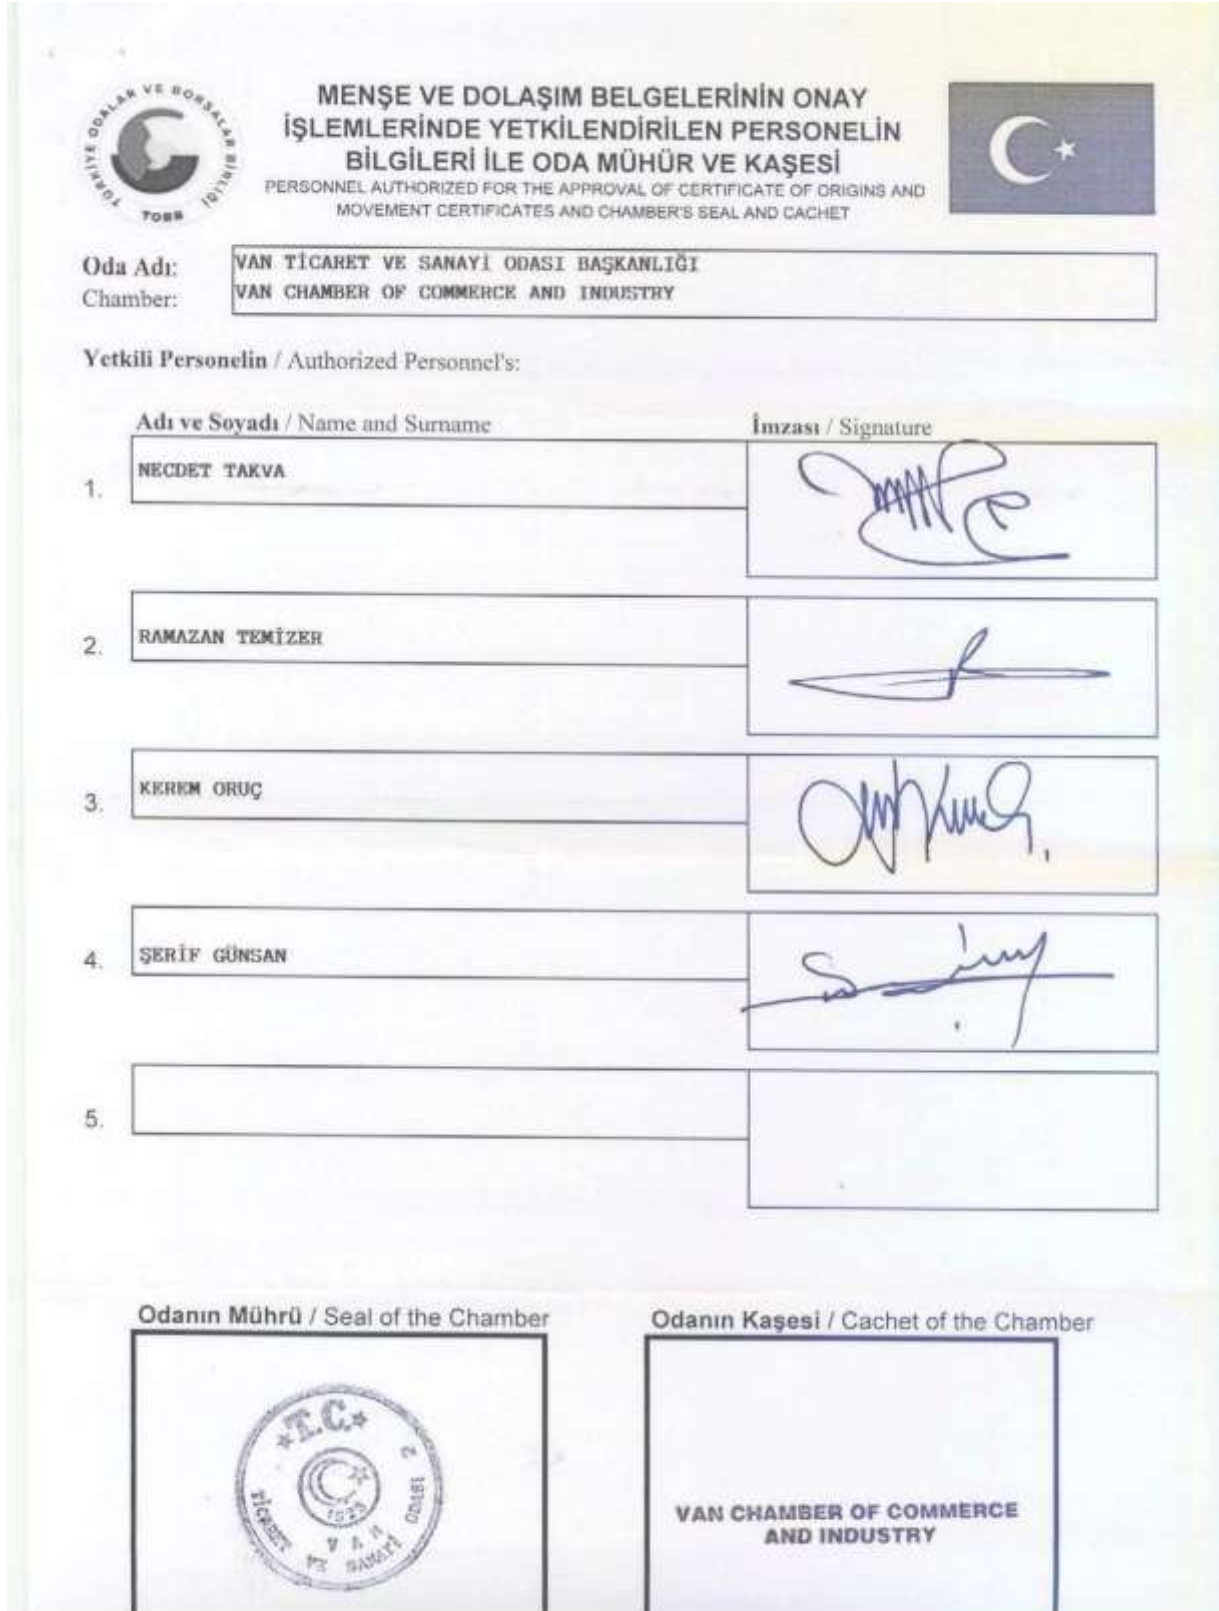 TÜRKİYE ODALAR VE BORSALAR BİRLİĞİ
TOBB
MENŞE VE DOLAŞIM BELGELERİNİN ONAY
İŞLEMLERİNDE YETKİLENDİRİLEN PERSONELİN
BİLGİLERİ İLE ODA MÜHÜR VE KAŞESİ
PERSONNEL AUTHORIZED FOR THE APPROVAL OF CERTIFICATE OF ORIGINS AND
MOVEMENT CERTIFICATES AND CHAMBER'S SEAL AND CACHET
Oda Adı: VAN TİCARET VE SANAYİ ODASI BAŞKANLIĞI
Chamber: VAN CHAMBER OF COMMERCE AND INDUSTRY
Yetkili Personelin / Authorized Personnel's:
Adı ve Soyadı / Name and Surname İmzası / Signature
1. NECDET TAKVA
2. RAMAZAN TEMİZER
3. KEREM ORUÇ
4. ŞERİF GÜNSAN
5.
Odanın Mührü / Seal of the Chamber Odanın Kaşesi / Cachet of the Chamber
T.C.
1923
VAN
TİCARET VE SANAYİ ODASI 2
VAN CHAMBER OF COMMERCE
AND INDUSTRY